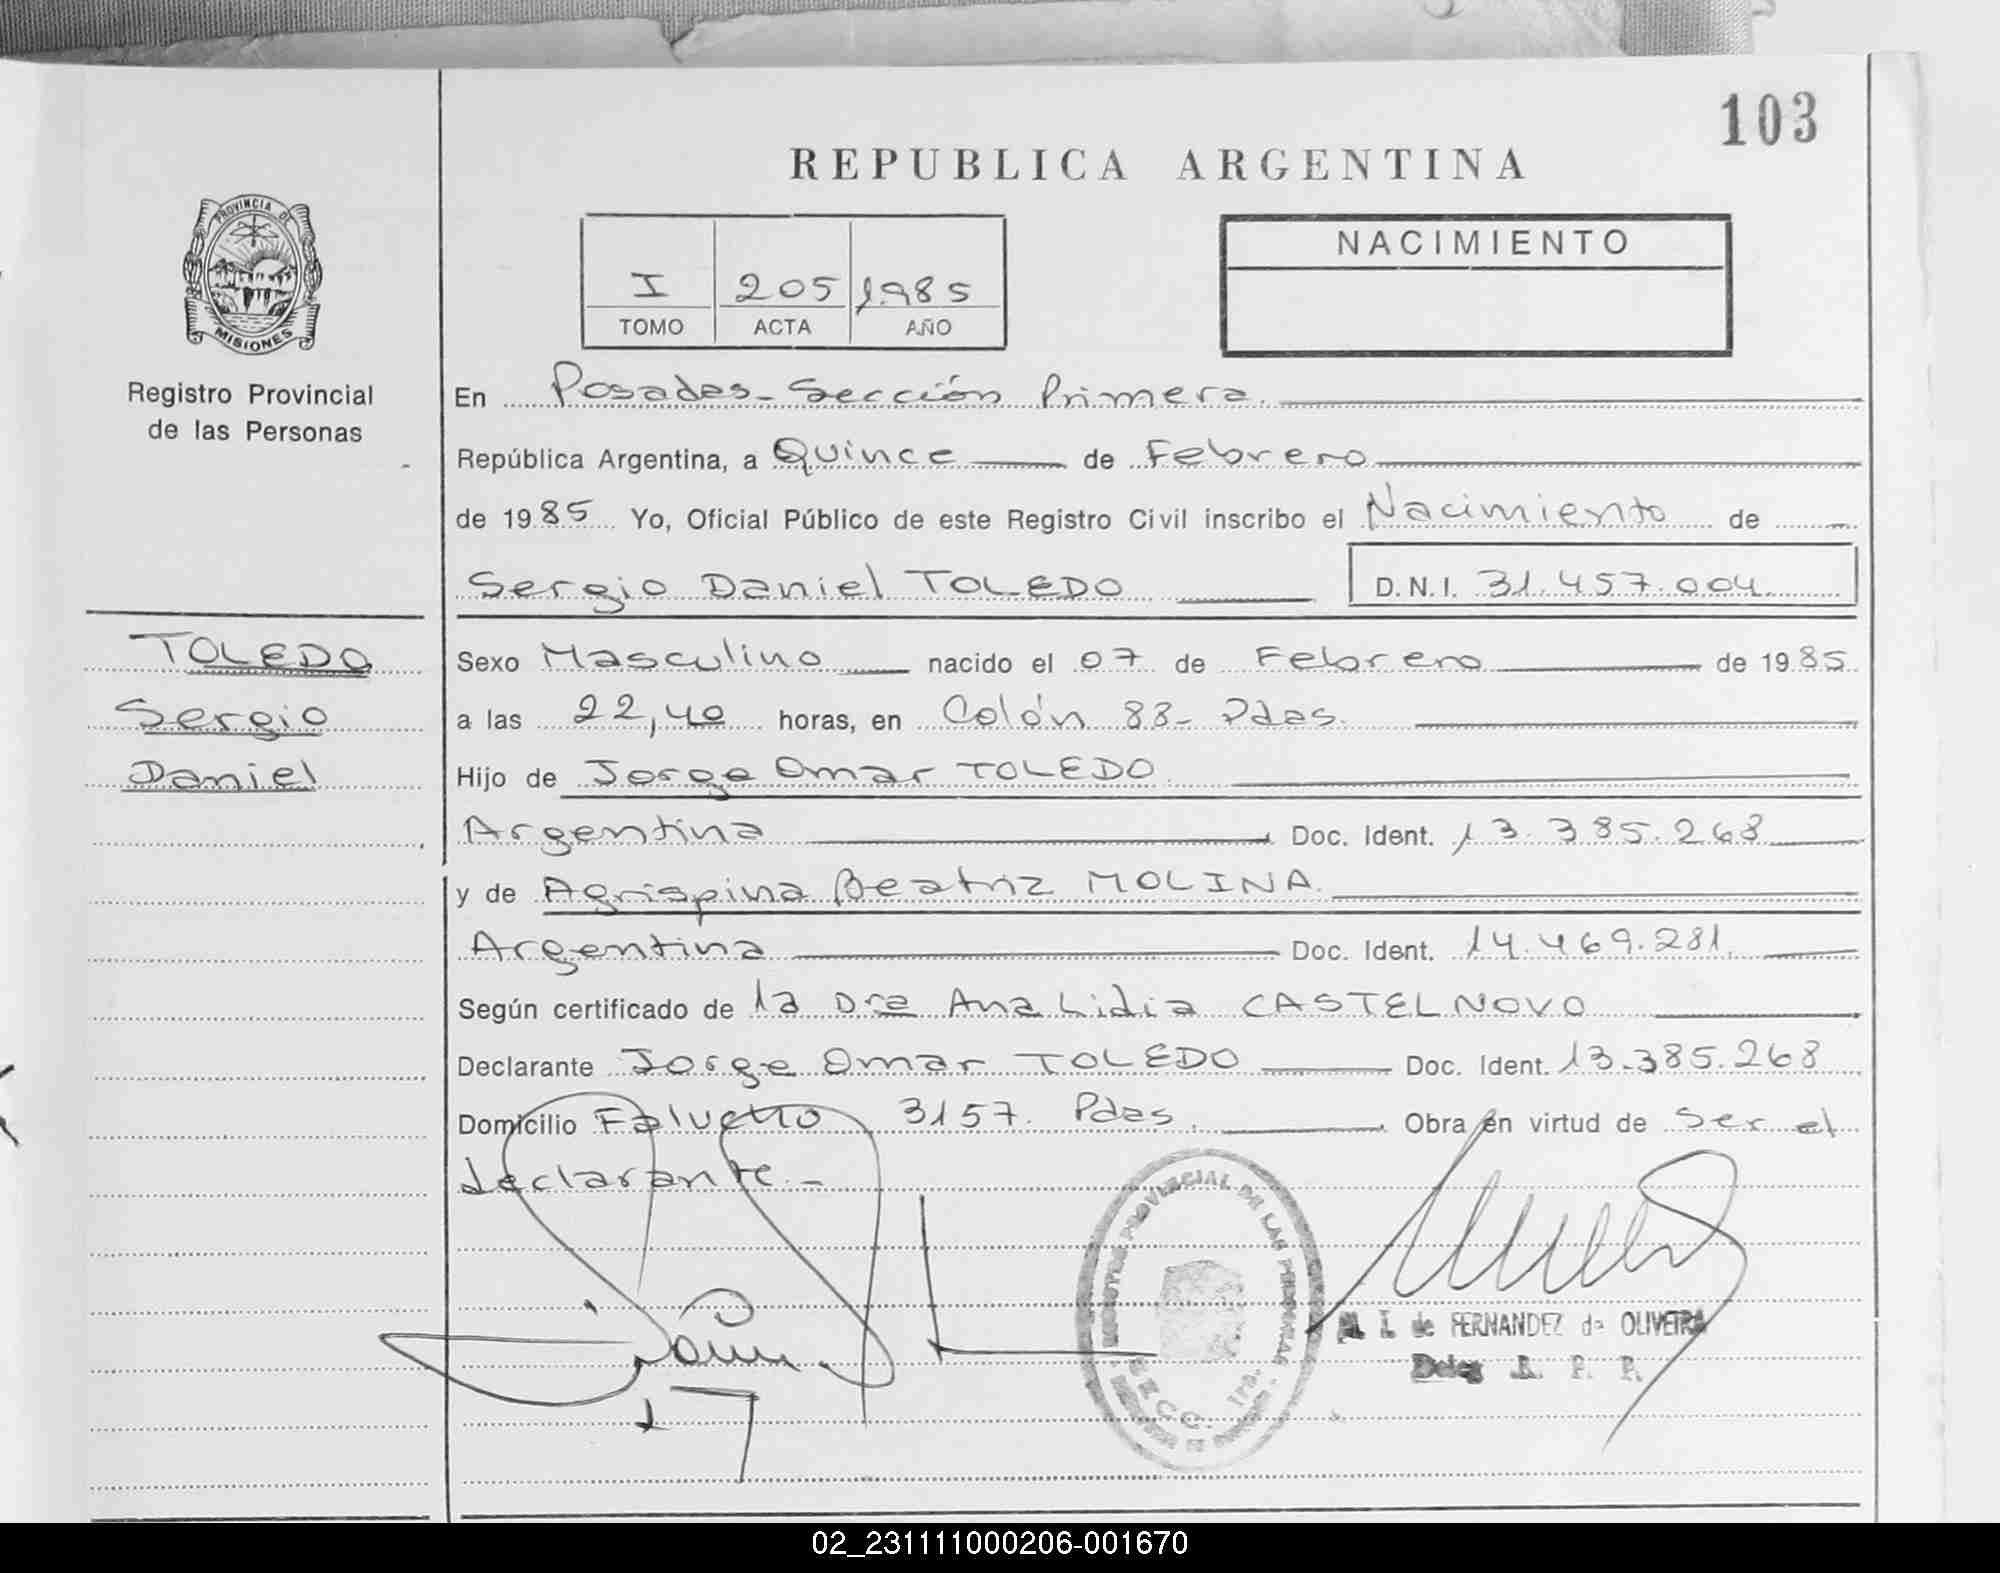 103
REPUBLICA ARGENTINA
PROVINCIA DE
MISIONES
Registro Provincial
de las Personas
I 205 1985
TOMO ACTA AÑO
NACIMIENTO
En Posadas - Sección Primera.
República Argentina, a Quince de Febrero
de 1985 Yo, Oficial Público de este Registro Civil inscribo el Nacimiento de
Sergio Daniel TOLEDO D.N.I. 31.457.004
TOLEDO
Sergio
Daniel
Sexo Masculino nacido el 07 de Febrero de 1985
a las 22,40 horas, en Colón 83 - Pdas.
Hijo de Jorge Omar TOLEDO
Argentina Doc. Ident. 13.385.268
y de Agrispina Beatriz MOLINA.
Argentina Doc. Ident. 14.469.281.
Según certificado de la Dra Ana Lidia CASTELNOVO
Declarante Jorge Omar TOLEDO Doc. Ident. 13.385.268
Domicilio Falucho 3157. Pdas. Obra en virtud de ser el
declarante.-
PROVINCIAL DE LAS PERSONAS
SECC. 1ra.
M. I. de FERNANDEZ de OLIVEIRA
Deleg R. P. P.
02_231111000206-001670